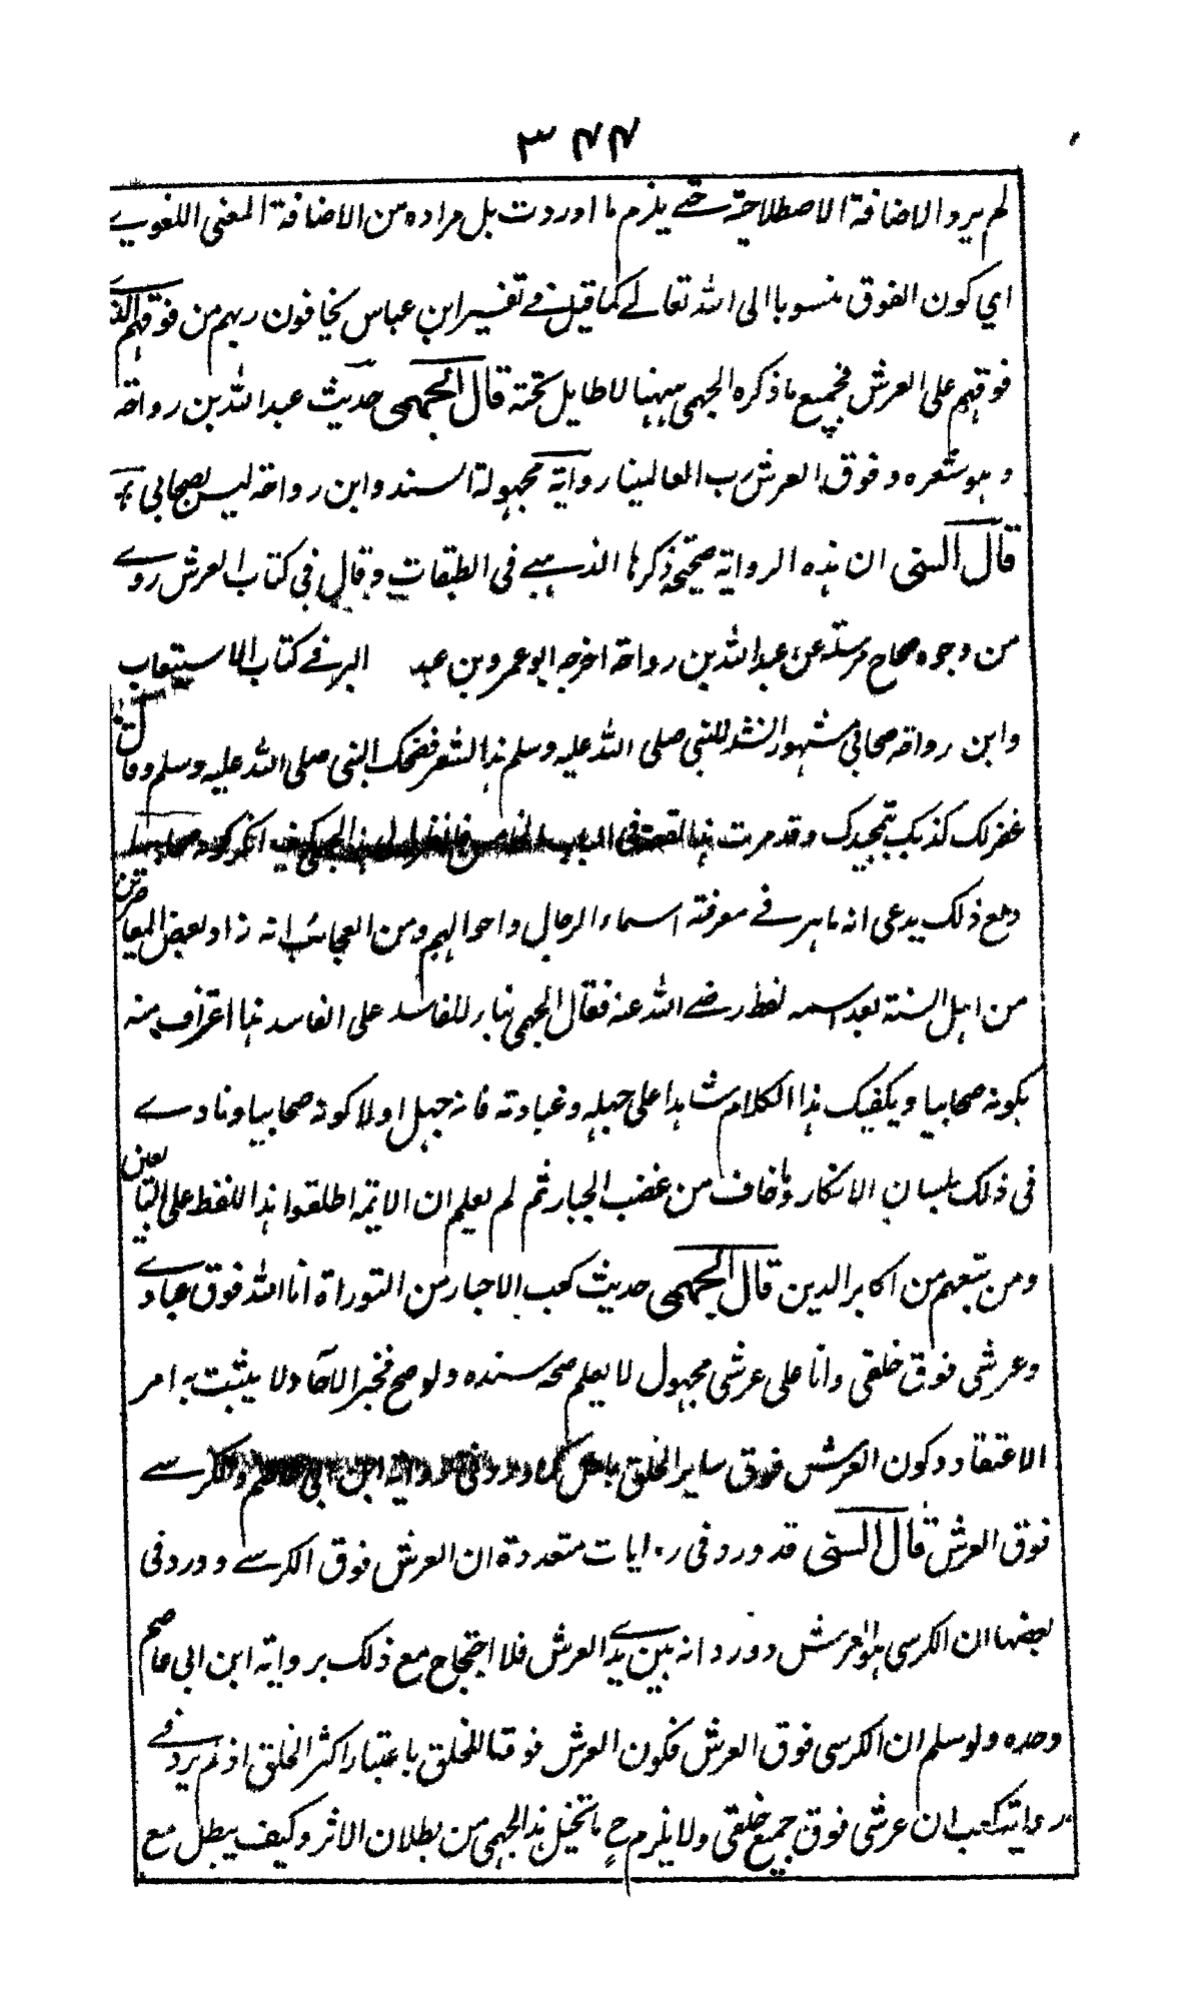 ٣٤٤
لم يرد الاضافة الاصطلاحية حتى يلزم ما اوردت بل مراده من الاضافة المعنى اللغوي
اي كون الفوق منسوبا الى الله تعالى كما قيل في تفسير ابن عباس يخافون ربهم من فوقهم الذي
فوقهم على العرش فجميع ما ذكره الجهمي ههنا لا طايل تحته قال الجهمي حديث عبد الله بن رواحة
وهو شعره وفوق العرش رب العالمينا رواية مجهولة السند وابن رواحة ليس بصحابي
قال السني ان هذه الرواية صحيحة ذكرها الذهبي في الطبقات وقال في كتاب العرش روي
من وجوه صحاح مرسلة عن عبد الله بن رواحة اخرجه ابو عمرو بن عبد البر في كتاب الاستيعاب
وابن رواحة صحابي مشهور انشد للنبي صلى الله عليه وسلم هذا الشعر فضحك النبي صلى الله عليه وسلم وقال
غفر لك كذبك بتمجيدك وقد مرت هذا القصة في الباب الخامس فانظر الى هذا الجهمي كيف انكر كونه صحابيا
ومع ذلك يدعي انه ماهر في معرفة اسماء الرجال واحوالهم ومن العجائب انه زاد بعض المعاصرين
من اهل السنة بعد اسمه لفظ رضي الله عنه فقال الجهمي بناء للفاسد على الفاسد هذا اعتراف منه
بكونه صحابيا ويكفيك هذا الكلام شاهدا على جهله وغباوته فانه جهل اولا كونه صحابيا ونادى
في ذلك بلسان الانكار وما خاف من غضب الجبار ثم لم يعلم ان الائمة اطلقوا هذا اللفظ على التابعين
ومن تبعهم من اكابر الدين قال الجهمي حديث كعب الاحبار من التوراة انا الله فوق عبادي
وعرشي فوق خلقي وانا على عرشي مجهول لا يعلم صحة سنده ولو صح فخبر الآحاد لا يثبت به امر
الاعتقاد وكون العرش فوق ساير الخلق باطل كما ورد في رواية ابن ابي عاصم والكرسي
فوق العرش قال السني قد ورد في روايات متعددة ان العرش فوق الكرسي وورد في
بعضها ان الكرسي هو العرش وورد انه بين يدي العرش فلا احتجاج مع ذلك برواية ابن ابي عاصم
وحده ولو سلم ان الكرسي فوق العرش فكون العرش فوقا للخلق باعتبار اكثر الخلق اذ لم يرد في
رواية كعب ان عرشي فوق جميع خلقي ولا يلزم ح ما تخيل هذا الجهمي من بطلان الاثر وكيف يبطل مع